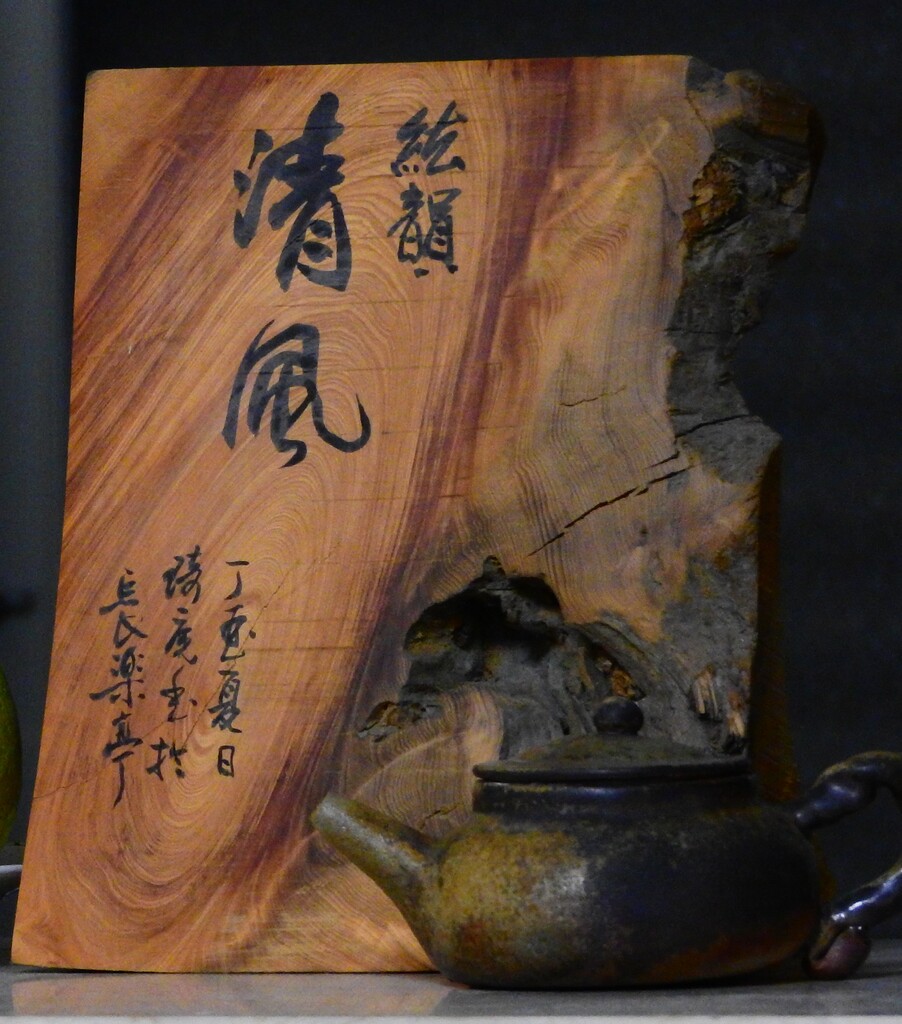 絃韻
清風
丁酉夏日
琦虎書於
長樂亭